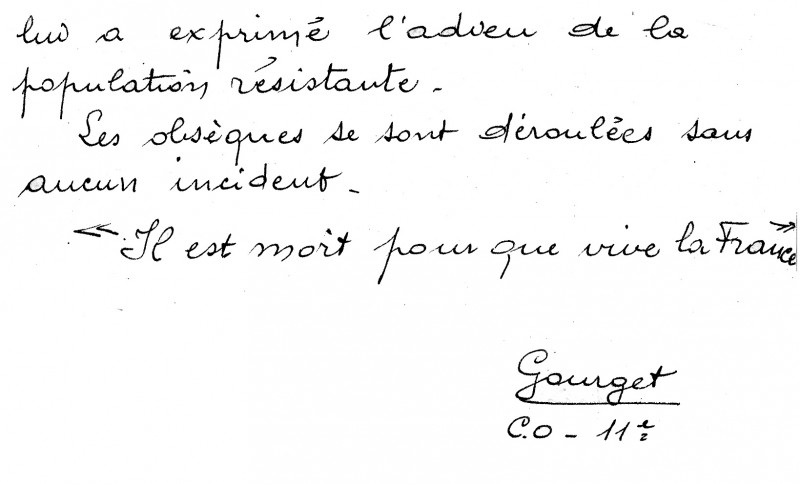 lui a exprimé l'adieu de la
population résistante.
Les obsèques se sont déroulées sans
aucun incident.
« Il est mort pour que vive la France »
Gourget
C.O - 11e